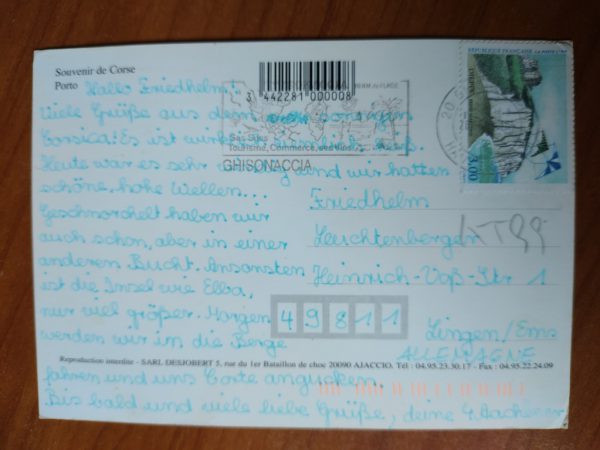 Souvenir de Corse
Porto
Hallo Friedhelm!
Viele Grüße aus dem sonnigen
Corsica! Es ist
Heute war es sehr windig und wir hatten
schöne, hohe Wellen...
Geschnorchelt haben wir
auch schon, aber in einer
anderen Bucht. Ansonsten
ist die Insel wie Elba,
nur viel größer. Morgen
werden wir in die Berge
fahren und uns Corte angucken.
Bis bald und viele liebe Grüße, deine
3 442281 000008
Ses Sites
Tourisme, Commerce,
GHISONACCIA
REPUBLIQUE FRANÇAISE LA POSTE
3,00
Friedhelm
Leuchtenbergen
Heinrich-Voß-Str 1
49811
Lingen/Ems
ALLEMAGNE
Reproduction interdite - SARL DESJOBERT 5, rue du 1er Bataillon de choc 20090 AJACCIO. Tél : 04.95.23.30.17 - Fax : 04.95.22.24.09